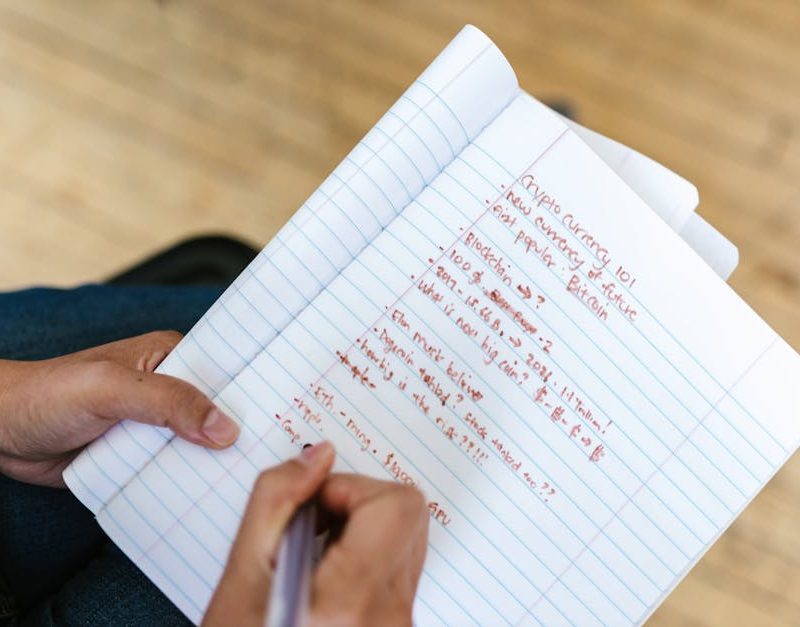 Cryptocurrency 101
- new currency of future
- first popular. Bitcoin
- Blockchain → ?
- 100 $.
- 2017. 15.66 B. → 2021. 1.7 Trillion!
- What is now big coin? $ - $ - $ → $
- Elon musk believes
- Dogecoin tanked? Stock tanked too??
- how big is the risk??!!
- ETH. - mining. $1000 GPU
- ripple.